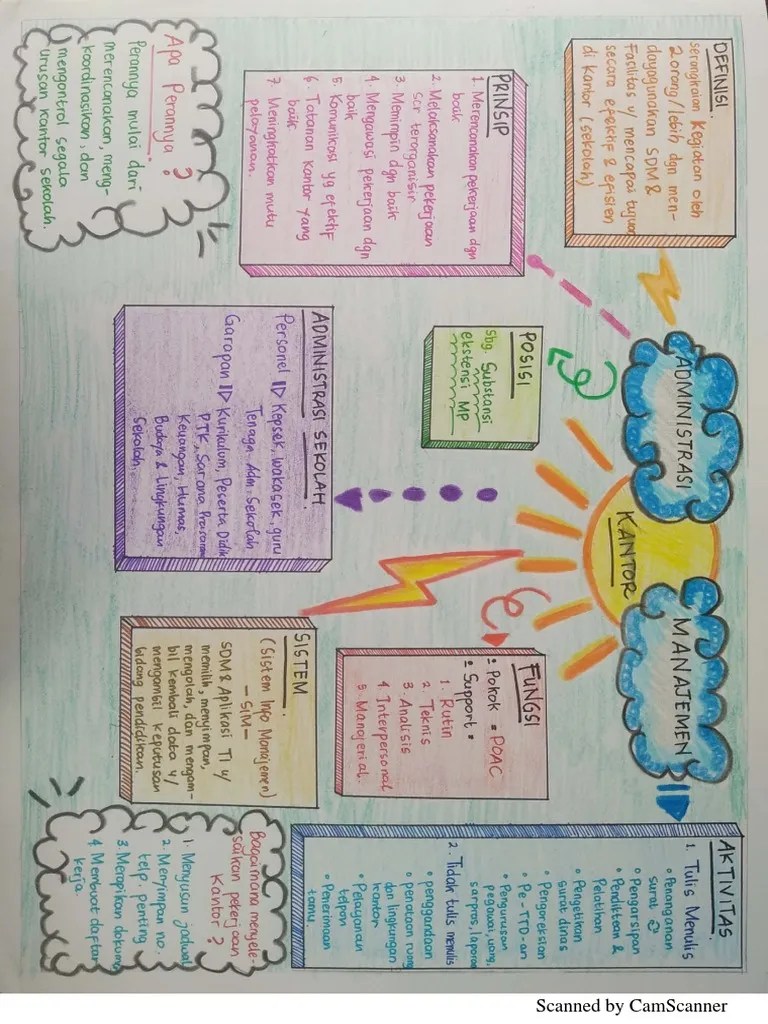 ADMINISTRASI
KANTOR
MANAJEMEN
DEFINISI
serangkaian kegiatan oleh
2 orang/lebih dgn men-
dayagunakan SDM &
Fasilitas u/ mencapai tujuan
secara efektif & efisien
di kantor (sekolah)
PRINSIP
1. Merencanakan pekerjaan dgn
baik
2. Melaksanakan pekerjaan
scr terorganisir
3. Memimpin dgn baik
4. Mengawasi pekerjaan dgn
baik
5. Komunikasi yg efektif
6. Tatanan kantor yang
baik
7. Meningkatkan mutu
pelayanan.
Apa Perannya?
Perannya mulai dari
merencanakan, meng-
koordinasikan, dan
mengontrol segala
urusan kantor sekolah.
POSISI
sbg. Substansi
ekstensi MP
ADMINISTRASI SEKOLAH
Personel Kepsek, wakasek, guru
Tenaga Adm. Sekolah
Garapan Kurikulum, Peserta Didik
PTK, Sarana Prasarana
Keuangan, Humas,
Budaya & Lingkungan
Sekolah.
FUNGSI
Pokok : POAC
Support :
1. Rutin
2. Teknis
3. Analisis
4. Interpersonal
5. Manajerial.
SISTEM
(Sistem Info Manajemen)
- SIM -
SDM & Aplikasi TI u/
memilih, menyimpan,
mengolah, dan mengam-
bil kembali data u/
mengambil keputusan
bidang pendidikan.
AKTIVITAS
1. Tulis Menulis
• Penanganan
surat
• Pengarsipan
• Pendidikan &
Pelatihan
• Pengetikan
surat dinas
• Pengoreksian
• Pe-TTD-an
• Pengurusan
pegawai, uang,
sarpras, laporan
2. Tidak tulis menulis
• penggandaan
• penataan ruang
dan lingkungan
kantor
• Pelayanan
telpon
• Penerimaan
tamu.
Bagaimana menyele-
saikan pekerjaan
Kantor?
1. Menyusun jadwal
2. Menyimpan no.
telp. penting
3. Merapikan dokumen
4. Membuat daftar
kerja.
Scanned by CamScanner